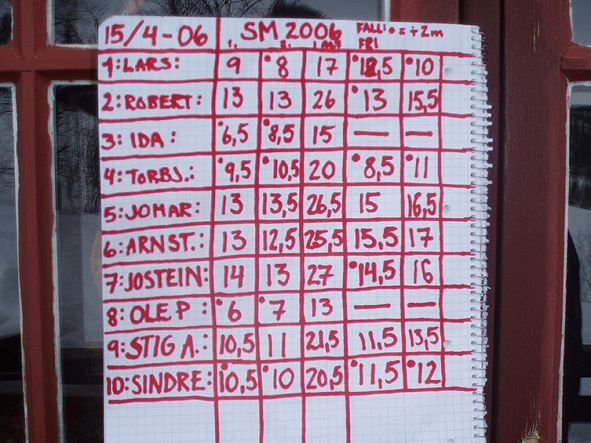 15/4-06 SM 2006 FALL: • = ÷ 2m
FRI
1: LARS: 9 •8 17 •12,5 •10
2: ROBERT: 13 13 26 •13 15,5
3: IDA: •6,5 •8,5 15 — —
4: TORBJ.: •9,5 •10,5 20 •8,5 •11
5: JOMAR: 13 13,5 26,5 15 16,5
6: ARNST.: 13 12,5 25,5 15,5 17
7: JOSTEIN: 14 13 27 •14,5 16
8: OLE P: •6 •7 13 — —
9: STIG A.: 10,5 11 21,5 11,5 13,5
10: SINDRE: •10,5 •10 20,5 •11,5 •12